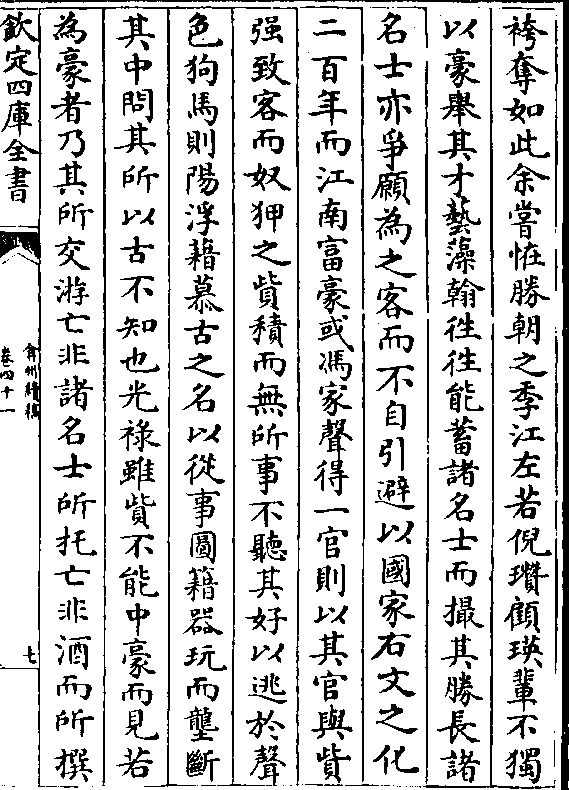 袴奪如此余嘗恠勝朝之季江左若倪瓚顧瑛輩不獨
以豪舉其才藝藻翰徃徃能蓄諸名士而撮其勝長諸
名士亦爭願為之客而不自引避以國家右文之化
二百年而江南富豪或馮家聲得一官則以其官與貲
强致客而奴狎之貲積而無所事不聽其好以逃於聲
色狗馬則陽浮藉慕古之名以從事圖籍器玩而壟斷
其中問其所以古不知也光祿雖貲不能中豪而見若
為豪者乃其所交游亡非諸名士所托亡非酒而所撰
欽定四庫全書
弇州續稿
卷四十一
七